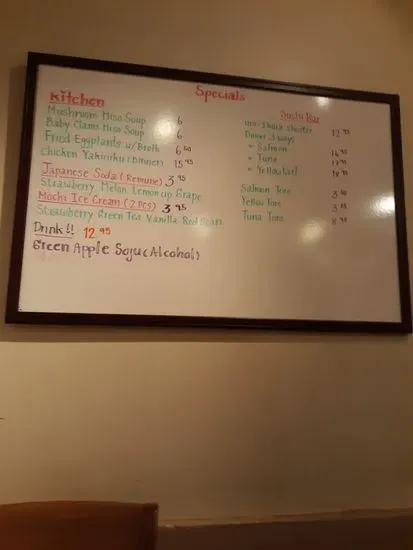 Specials
Kitchen
Mushroom Miso Soup 6
Baby Clams Miso Soup 6
Fried Eggplants w/Broth 6 50
Chicken Yakiniku (Dinner) 15 95
Japanese Soda (Remune) 3 95
Strawberry Melon Lemon up Grape
Mochi Ice Cream (2 pcs) 3 95
Strawberry Green Tea Vanilla Red Bean
Drink!! 12 95
Green Apple Soju (Alcohol)
Sushi Bar
uni-Ikura shooter 12 95
Dinner 3 ways
Salmon
Tuna
Yellowtail
Salmon Toro
Yellow Toro
Tuna Toro